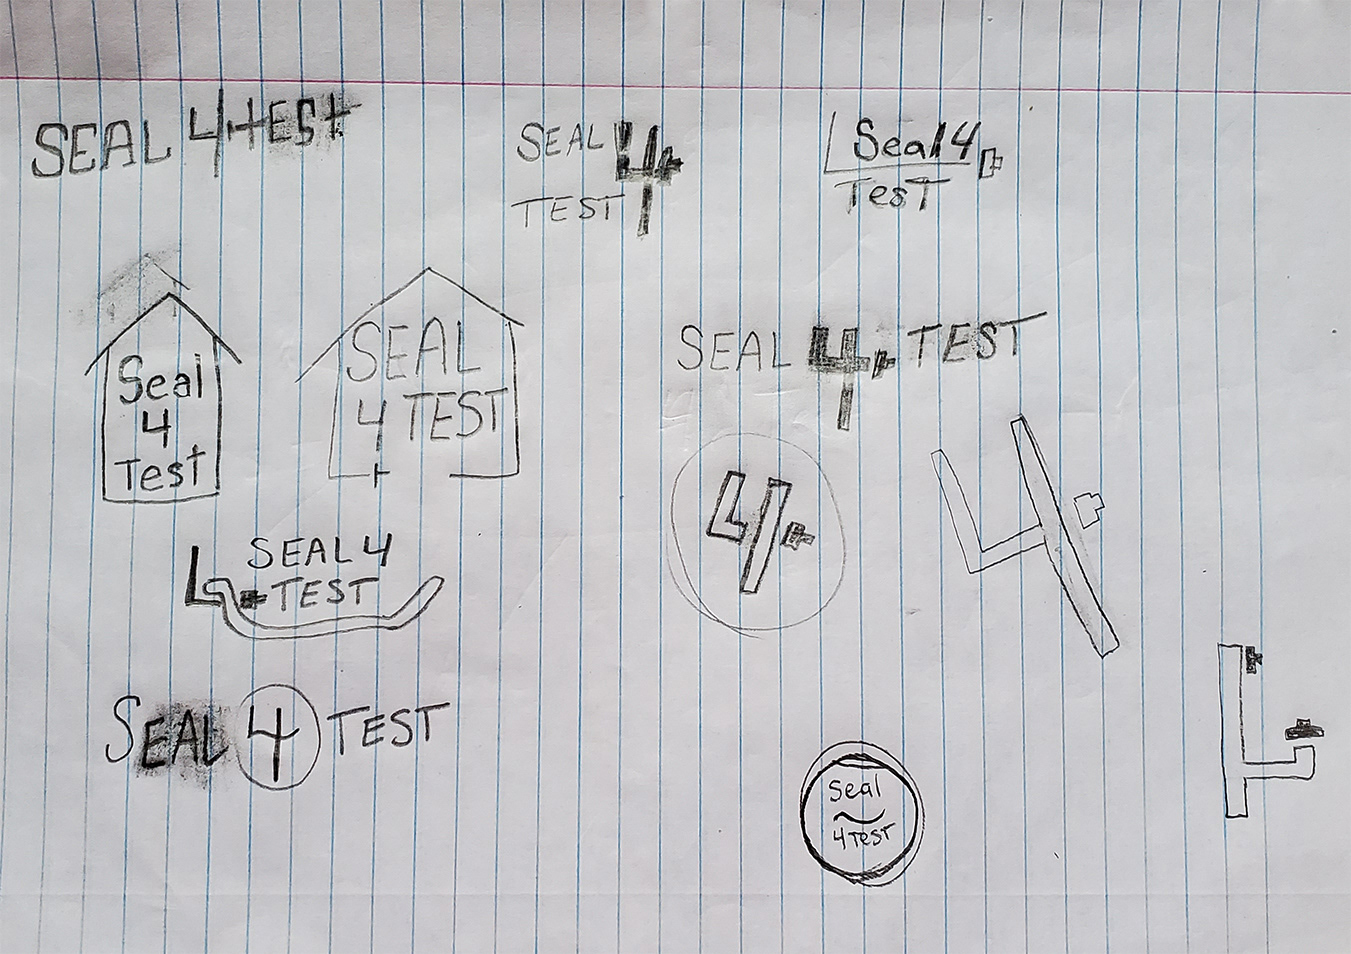 SEAL 4 TEST
SEAL 4
TEST
Seal 4
TesT
Seal
4
Test
SEAL
4 TEST
SEAL 4 TEST
4
4
SEAL 4
TEST
SEAL 4 TEST
Seal
4 TesT